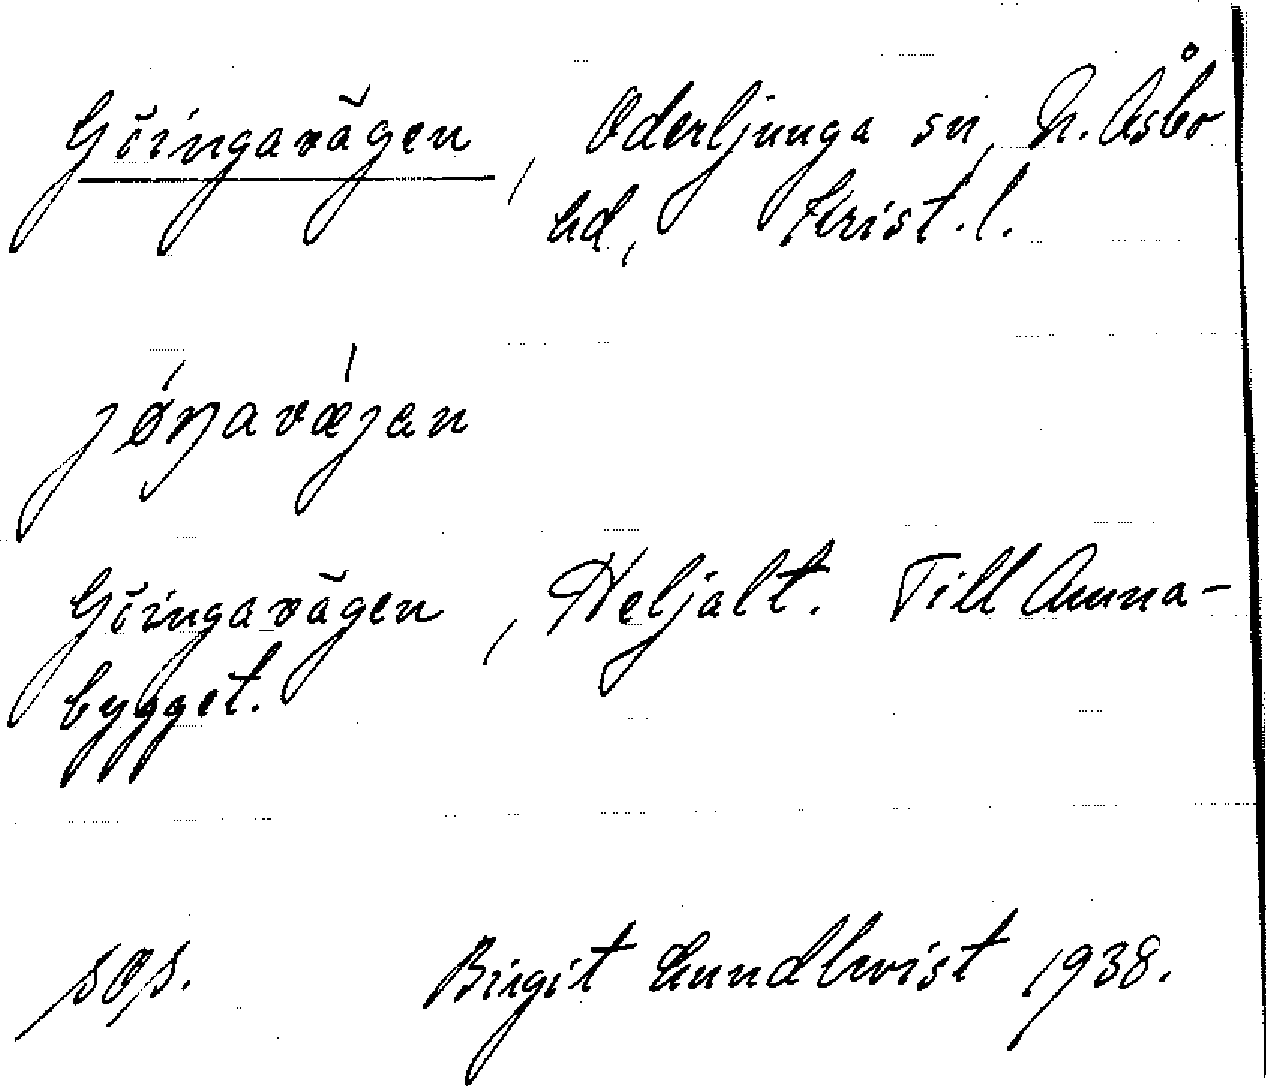 Göingavägen, Oderljunga sn, N. Åsbo
hd, Krist. l.
jǿŋavǽjen
Göingavägen, Heljalt. Till Anna-
bygget.
Birgit Lundkvist 1938.